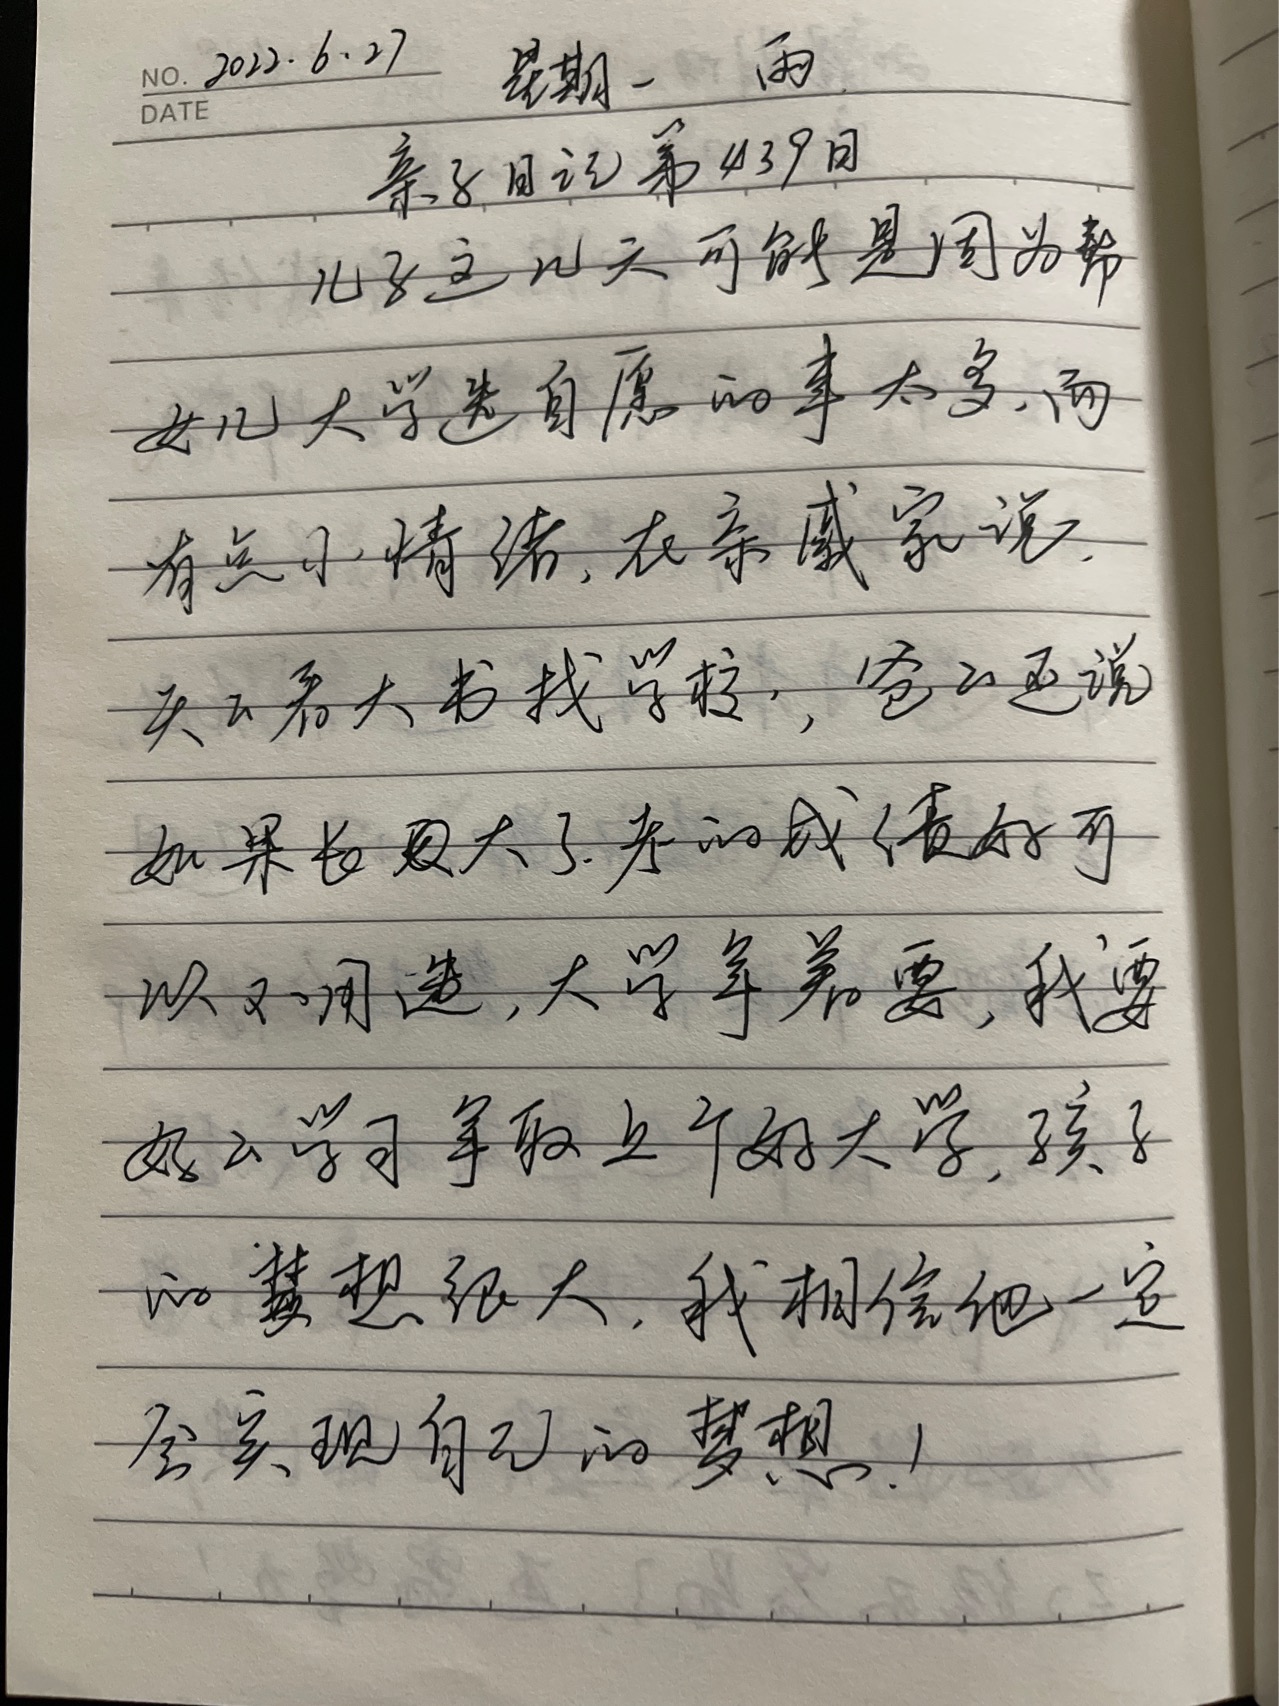 NO. 2022.6.27 星期一 雨
DATE
亲子日记第439日
儿子这几天可能是因为帮
女儿大学选自愿的事太多、而
有点小情绪,在亲戚家说,
天々看大书找学校,爸々还说
如果长大了考的成绩好可
以不用选,大学争着要,我要
好々学习争取上个好大学,孩子
的梦想很大,我相信他一定
会实现自己的梦想!